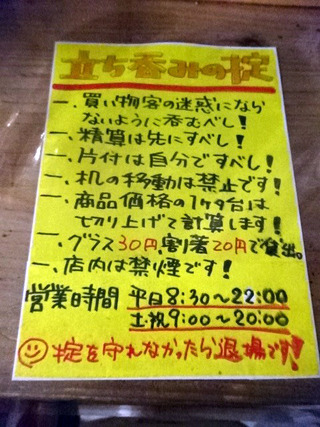 立ち呑みの掟
一、買い物客の迷惑になら
ないように呑むべし!
一、精算は先にすべし!
一、片付は自分ですべし!
一、机の移動は禁止です!
一、商品価格の1ケタ台は
切り上げて計算します!
一、グラス30円、割箸20円で貸出。
一、店内は禁煙です!
営業時間 平日8:30~22:00
土・祝9:00~20:00
掟を守れなかったら退場です!